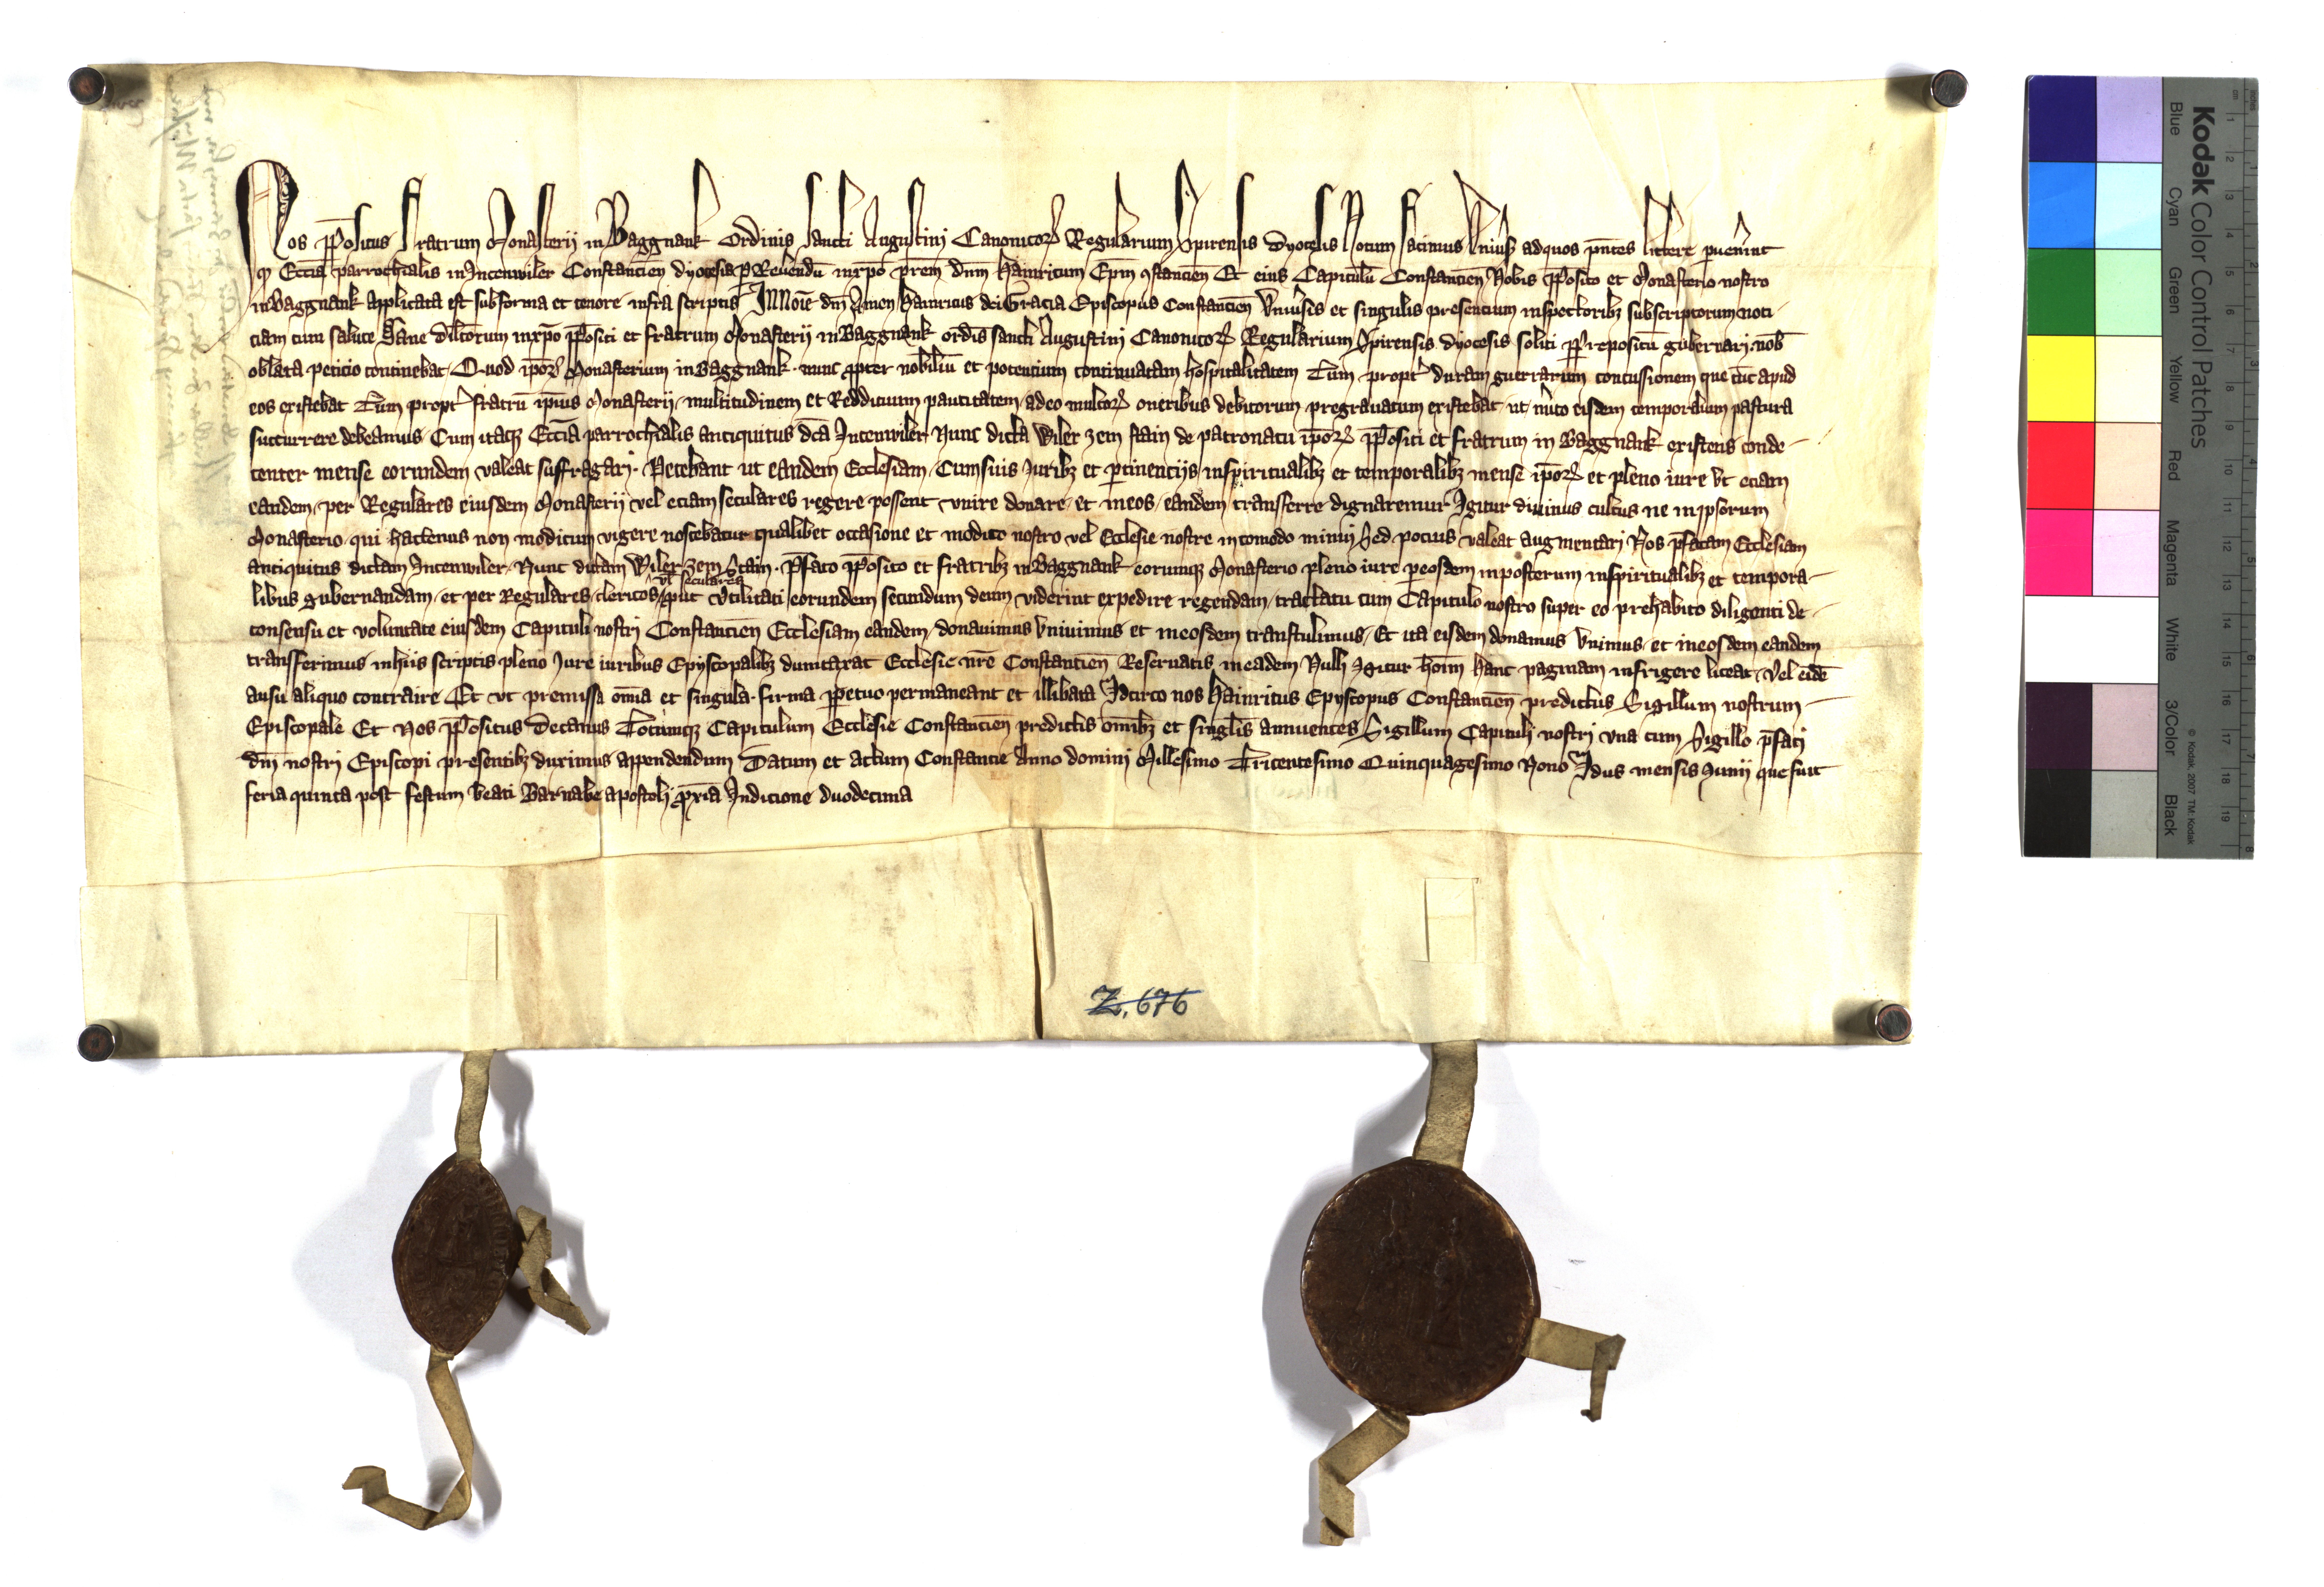 Nos ppo͞situs fratrum Monasterij in Baggnank Ordinis sancti Augustini Canonicoꝝ Regularium Spirensis dyocesis Notum facimus Vniuˀsꝭ ad quos pn̄tes littere puenˀint
ꝙ Ecci̅a parrochialis in Jncenwiler Constancien̄ dyocesis ꝑ Reuendū in xp̄o pr̄em dn̄m Hainricum Ep̄m ꝯstancien̄ Et eius Capitulū Constancien̄ Nobis pp̄osito et Monasterio nostro
in Baggnank applicata est sub forma et tenore infra scriptis Jn Noīe dn̄i Amen Hainricus dei Gracia Episcopus Constancien̄ Vniuˀsis et singulis presencium inspectoribꝫ subscriptorum noti-
ciam cum salute Sane dilcōrum in xp̄o pp̄ositi et fratrum Monasterij in Baggnank ordīs sancti Augustini Canonicoꝝ Regularium Spirensis dyocesis soliti ꝑ prepositū gubernari nob̄
oblata peticio continebat Quod ip̄oꝝ Monasterium in Baggnank nunc ꝓpter nobiliū et potencium continuatam hospitalitatem Tum proptˀ duram guerrarum concussionem que tūc apud
eos existebat Tum proptˀ fratrū ip̄ius Monasterij multitudinem et Reddituum paucitatem adeo multoꝝ oneribus debitorum pregrauatum existebat ut mˀito eisdem temporalium pastura
succurrere debeamus Cum itaqꝫ Ecci̅a parrochialis antiquitus dc̄a Jncenwiler Nunc dicta Wiler zem stain de patronatu ip̄oꝝ pp̄ositi et fratrum in Baggnank existens conde-
center mense eorundem valeat suffragari Petebant ut eandem Ecclesiam Cum suis Juribꝫ et ꝑtinencijs in spiritualibꝫ et temporalibꝫ mense ip̄oꝝ et pleno iure vt eciam
eandem per Regulares eiusdem Monasterij vel eciam seculares regere possent vnire donare et in eos eandem transferre dignaremur Jgitur diuinus cultus ne in ipsorum
Monasterio qui hactenus non modicum vigere noscebatur qualibet occasione et modico nostro vel Ecclesie nostre incomodo minui Sed pocius valeat augmentari Nos pf̄atam Ecclesiam
antiquitus dictam Jncenwiler Nunc dictam Wiler zem Stain pf̄ato pp̄osito et fratribꝫ in Baggnank eorumqꝫ Monasterio pleno iure ꝑ eosdem in posterum in spiritualibꝫ et tempora-
vl̄ seculares
libus gubernandam et per Regulares clericos ꝓut Vtilitati eorundem secundum deum viderint expedire regendam tractatu cum Capitulo nostro super eo prehabito diligenti de
consensu et voluntate eiusdem Capituli nostri Constancien̄ Ecclesiam eandem donauimus Vniuimus et in eosdem transtulimus Et ita eisdem donamus Vnimus et in eosdem eandem
transferimus in hiis scriptis pleno Jure iuribus Epyscopalibꝫ dumtaxat Ecclesie nr̄e Constancien̄ Reseruatis in eadem Nulli Jgitur hoīm hanc paginam infrigere liceat Vel eidē
ausu aliquo contraire Et vt premissa om̄ia et singula firma ꝑpetuo permaneant et illibata Jdcirco nos Hainricus Epyscopus Constancien̄ predictus Sigillum nostrum
Episcopale Et Nos pp̄ositus decanus Totumqꝫ Capitulum Ecclesie Constancien̄ predictis om̄ibꝫ et singl̄is annuentes Sigillum Capituli nostri vna cum Sigillo pf̄ati
dn̄i nostri Episcopi presentibꝫ duximus appendendum Datum et actum Constancie Anno domini Millesimo Tricentesimo Quinquagesimo Nono Jdus mensis Junij que fuit
feria quinta post festum beati Barnabe apostoli ꝓxi̅a Jndicione duodecima
Z. 676
Kodak Color Control Patches
Blue Cyan Green Yellow Red Magenta White 3/Color Black
© Kodak, 2007 TM: Kodak
cm 1 2 3 4 5 6 7 8 9 10 11 12 13 14 15 16 17 18 19
inches 1 2 3 4 5 6 7 8